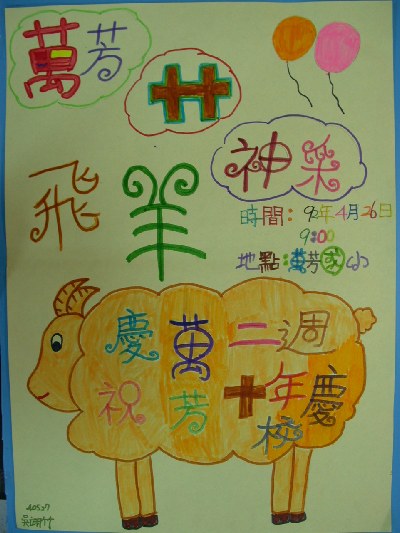 萬芳
卄
神采
飛羊
時間：92年4月26日
9:00
地點：萬芳國小
慶祝
萬芳
二十
週年
校慶
40537